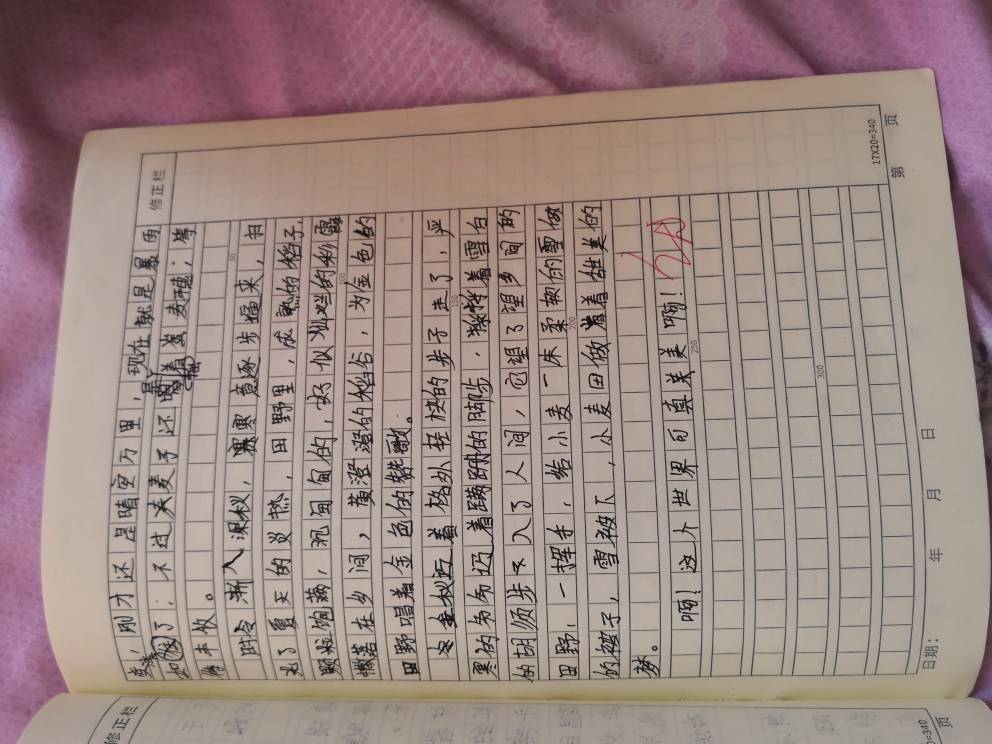 修正栏
变，刚才还是晴空万里，现在就是暴雨
了；不过麦子还是盖麦穗，等
丰收。
时令渐入深秋，寒意逐步逼来，扫
光了夏天的炎热，田野里，成熟的稻子，
颗粒饱满，沉甸甸的，好似灿烂的彩霞
撒落在乡间，黄澄澄的稻谷，为金色的
田野唱着金色的赞歌。
秋迈着格外轻快的步子走了，严
寒的冬迈着蹒跚的脚步，捋着雪白
的胡须步入了人间，它望了望乡间的
田野，一挥手，给小麦一床柔软的雪做
的被子，雪被下，小麦田做着甜美的
梦。
啊！这个世界可真美啊！
50
100
150
200
250
300
17X20=340
第 页
日期： 年 月 日
修正栏
页